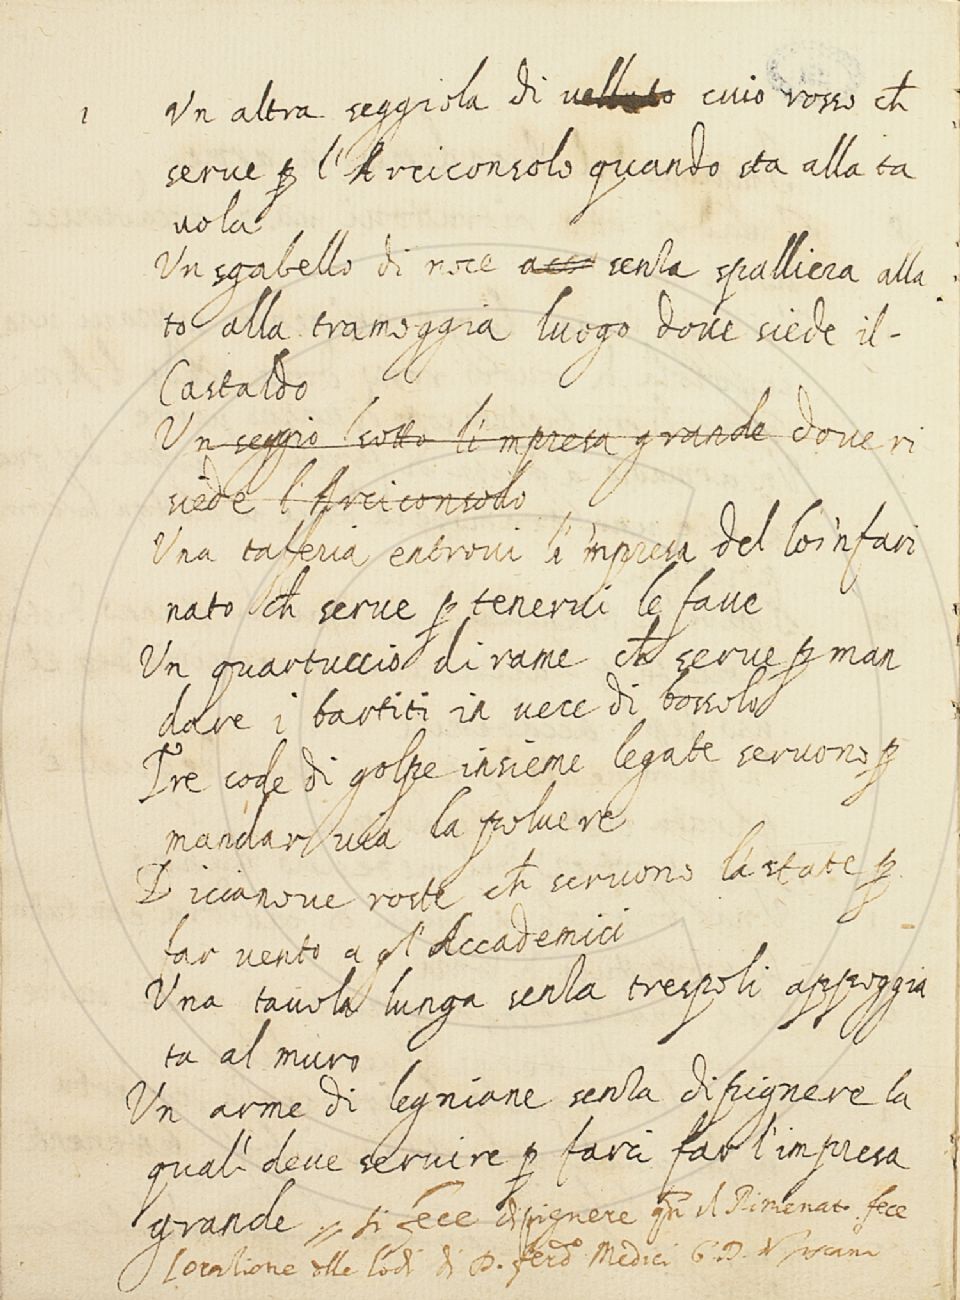 1 Vn altra seggiola di uelluto cuio rosso ch
serue p l'Arciconsolo quando sta alla ta
uola
Vn sgabello di noce senza spalliera alla
to alla tramoggia luogo doue siede il-
Castaldo
Vn seggio sotto l'impresa grande doue ri
siede l'Arciconsolo
Una taferia entroui l'impresa del lo'nfari
nato ch serue p tenerui le faue
Vn quartuccio di rame ch serue p man
dare i partiti in uece di bossolo
Tre code di golpe insieme legate seruono p
mandar uia la poluere
Dicianoue roste ch seruono la state p
far uento a gl'Accademici
Vna tauola lunga senza trespoli appoggia
ta al muro
Vn arme di legniane senza dipignere la
quali deue seruire p farci far l'impresa
grande si fece dipignere qn il Rimenato fece
l'orazione delle lodi di D. Ferdo Medici G. D. di Toscana